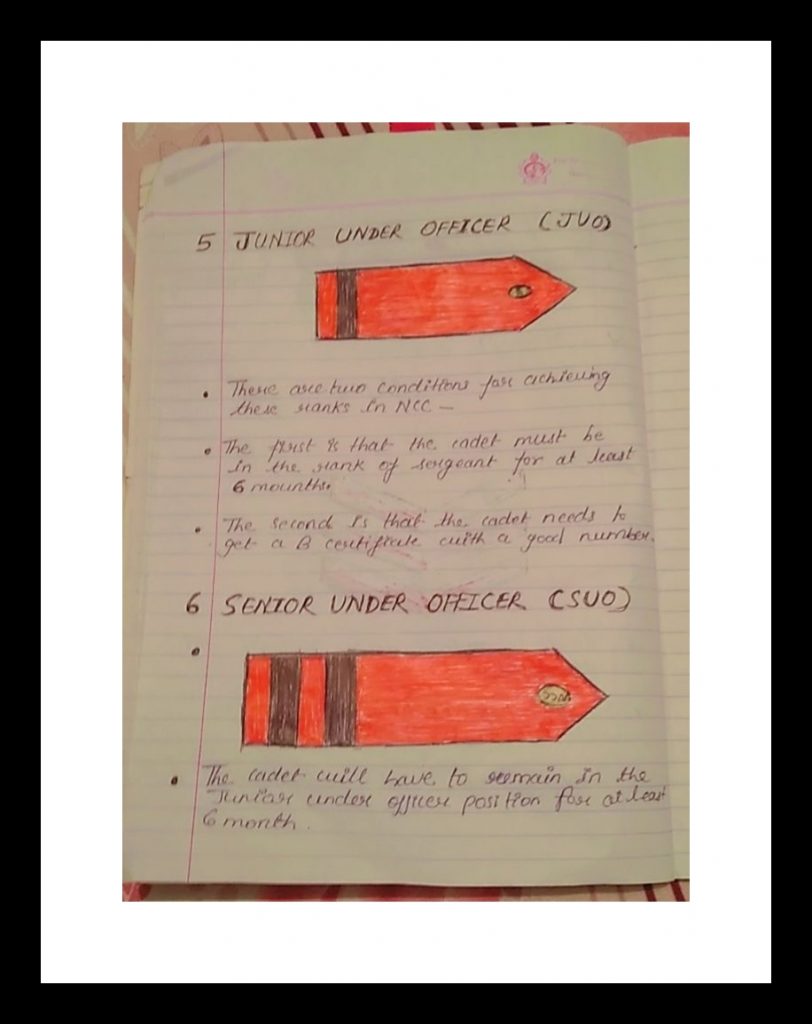 5 JUNIOR UNDER OFFICER (JUO)
• There are two conditions for achieving
these ranks in NCC —
• The first is that the cadet must be
in the rank of sergeant for at least
6 mounths.
• The second is that the cadet needs to
get a B certificate with a good number.
6 SENIOR UNDER OFFICER (SUO)
•
NCC
• The cadet will have to remain in the
Junior under officer position for at least
6 month.